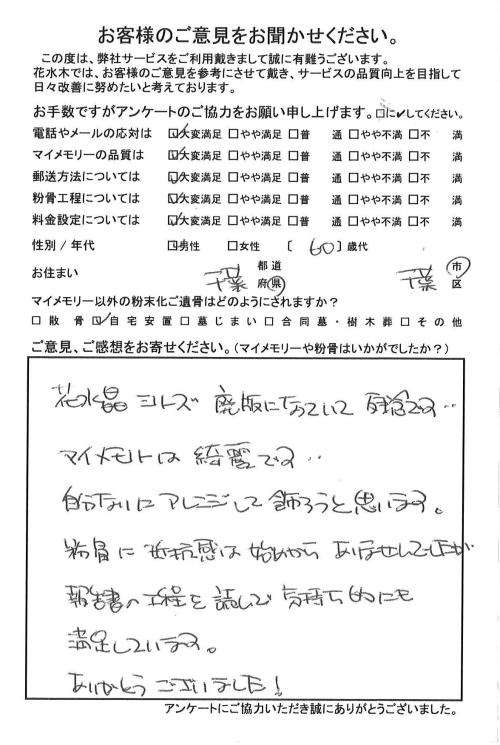 お客様のご意見をお聞かせください。
この度は、弊社サービスをご利用戴きまして誠に有難うございます。
花水木では、お客様のご意見を参考にさせて戴き、サービスの品質向上を目指して
日々改善に努めたいと考えております。
お手数ですがアンケートのご協力をお願い申し上げます。□に✓してください。
電話やメールの応対は ☑大変満足 □やや満足 □普 通 □やや不満 □不 満
マイメモリーの品質は ☑大変満足 □やや満足 □普 通 □やや不満 □不 満
郵送方法については ☑大変満足 □やや満足 □普 通 □やや不満 □不 満
粉骨工程については ☑大変満足 □やや満足 □普 通 □やや不満 □不 満
料金設定については ☑大変満足 □やや満足 □普 通 □やや不満 □不 満
性別 / 年代 ☑男性 □女性 〔 60 〕歳代
お住まい 千葉 都道府県 千葉 市区
マイメモリー以外の粉末化ご遺骨はどのようにされますか？
□散 骨 ☑自宅安置 □墓じまい □合同墓・樹木葬 □その他
ご意見、ご感想をお寄せください。（マイメモリーや粉骨はいかがでしたか？）
花水晶 シリーズ 廃版になっていて 残念です‥
マイメモリーは 綺麗です‥
自分なりに アレンジして 飾ろうと思います。
粉骨に 抵抗感は 始めから ありませんでしたが
報告書の 工程を 読んで 気持ち的にも
満足しています。
ありがとう ございました！
アンケートにご協力いただき誠にありがとうございました。